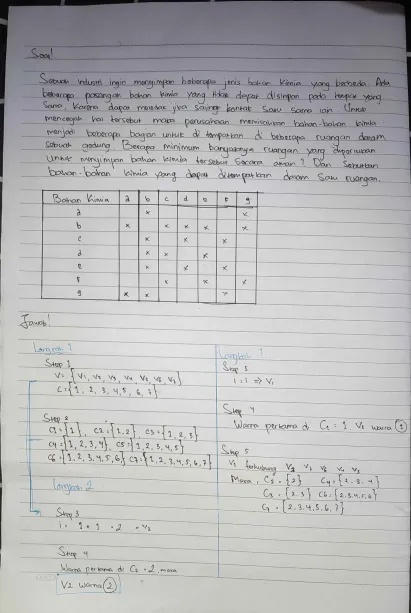 Soal!
Sebuah industri ingin menyimpan beberapa jenis bahan kimia yang berbeda. Ada
beberapa pasangan bahan kimia yang tidak dapat disimpan pada tempat yang
sama, karena dapat meledak jika saling kontak satu sama lain. Untuk
mencegah hal tersebut maka perusahaan memisahkan bahan-bahan kimia
menjadi beberapa bagian untuk di tempatkan di beberapa ruangan dalam
sebuah gudang. Berapa minimum banyaknya ruangan yang diperlukan
untuk menyimpan bahan kimia tersebut secara aman? Dan Sebutkan
bahan-bahan kimia yang dapat ditempatkan dalam satu ruangan.
Bahan Kimia a b c d e f g
a x x
b x x x x x
c x x x
d x x x
e x x x
f x x x
g x x x
Jawab!
Langkah 1
Step 1
V = {V1, V2, V3, V4, V5, V6, V7}
C = {1, 2, 3, 4, 5, 6, 7}
Step 2
C1 = {1} C2 = {1,2} C3 = {1, 2, 3}
C4 = {1, 2, 3, 4} C5 = {1, 2, 3, 4, 5}
C6 = {1, 2, 3, 4, 5, 6} C7 = {1, 2, 3, 4, 5, 6, 7}
Langkah 2
Step 3
i = 1 + 1 = 2 = V2
Step 4
Warna pertama di C2 = 2, maka
V2 warna 2
Langkah 1
Step 3
i = 1 => V1
Step 4
Warna pertama di C1 = 1. V1 warna 1
Step 5
V1 terhubung
Maka, C2 = {2} C4 = {2, 3, 4}
C3 = {2, 3} C6 = {2,3,4,5,6}
C7 = {2,3,4,5,6,7}